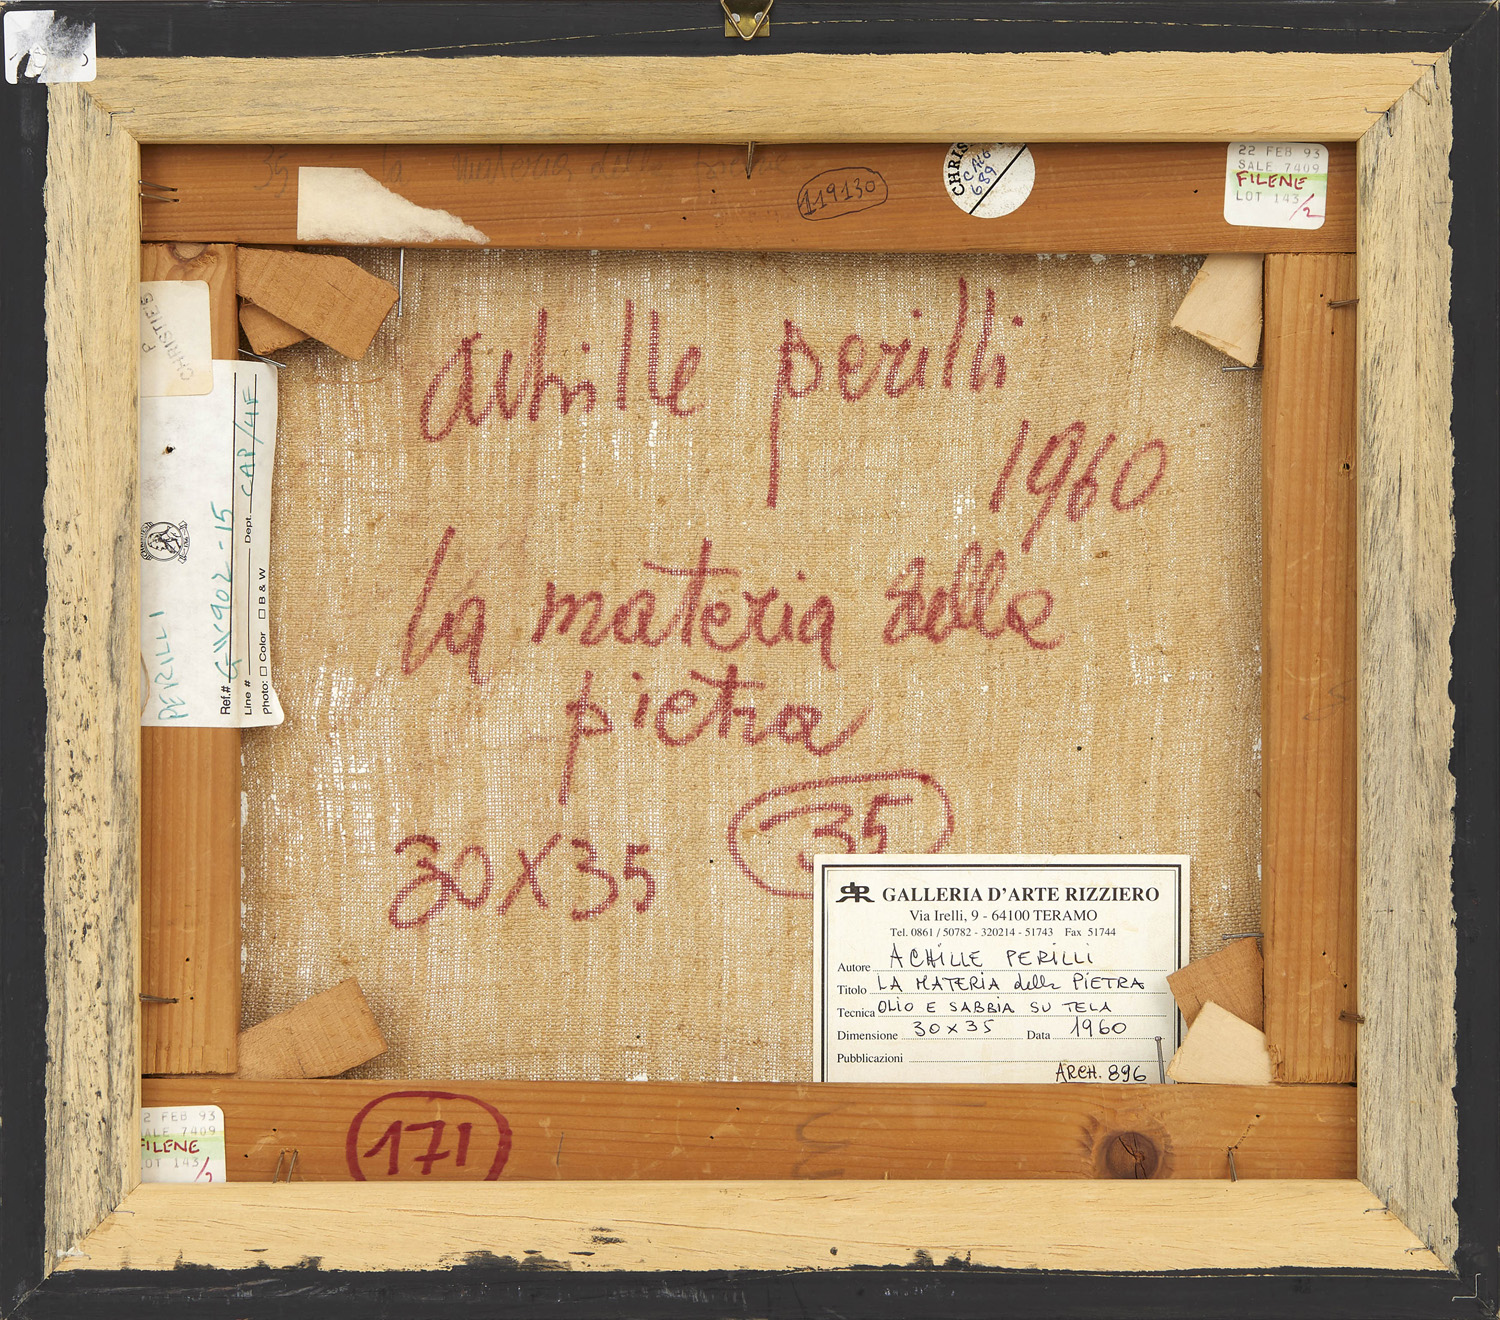 35 la materia della pietra
119130
CHRIS
CALE
689
22 FEB 93
SALE 7409
FILENE
LOT 143
/2
CHRISTIES
P
PERILLI
Ref.# GX902-15
Line # Dept. CAP/4F
Photo: □ Color □ B & W
achille perilli
1960
la materia della
pietra
35
30x35
GALLERIA D'ARTE RIZZIERO
Via Irelli, 9 - 64100 TERAMO
Tel. 0861 / 50782 - 320214 - 51743 Fax 51744
Autore ACHILLE PERILLI
Titolo LA MATERIA della PIETRA
Tecnica OLIO E SABBIA SU TELA
Dimensione 30x35 Data 1960
Pubblicazioni
ARCH. 896
2 FEB 93
ALE 7409
FILENE
OT 143
/2
171